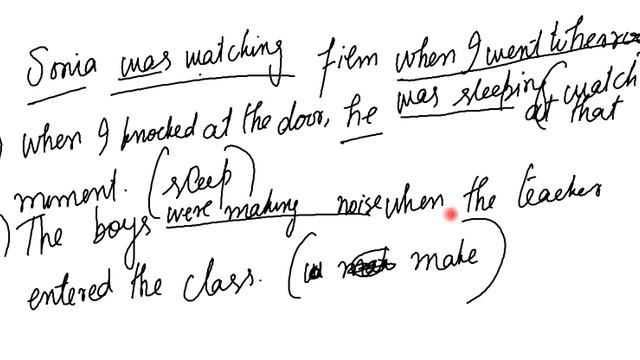 Sonia was watching film when I went to her
) when I knocked at the door, he was sleeping (watch
at that
moment. (sleep)
) The boys were making noise when the teacher
entered the class. ( make )